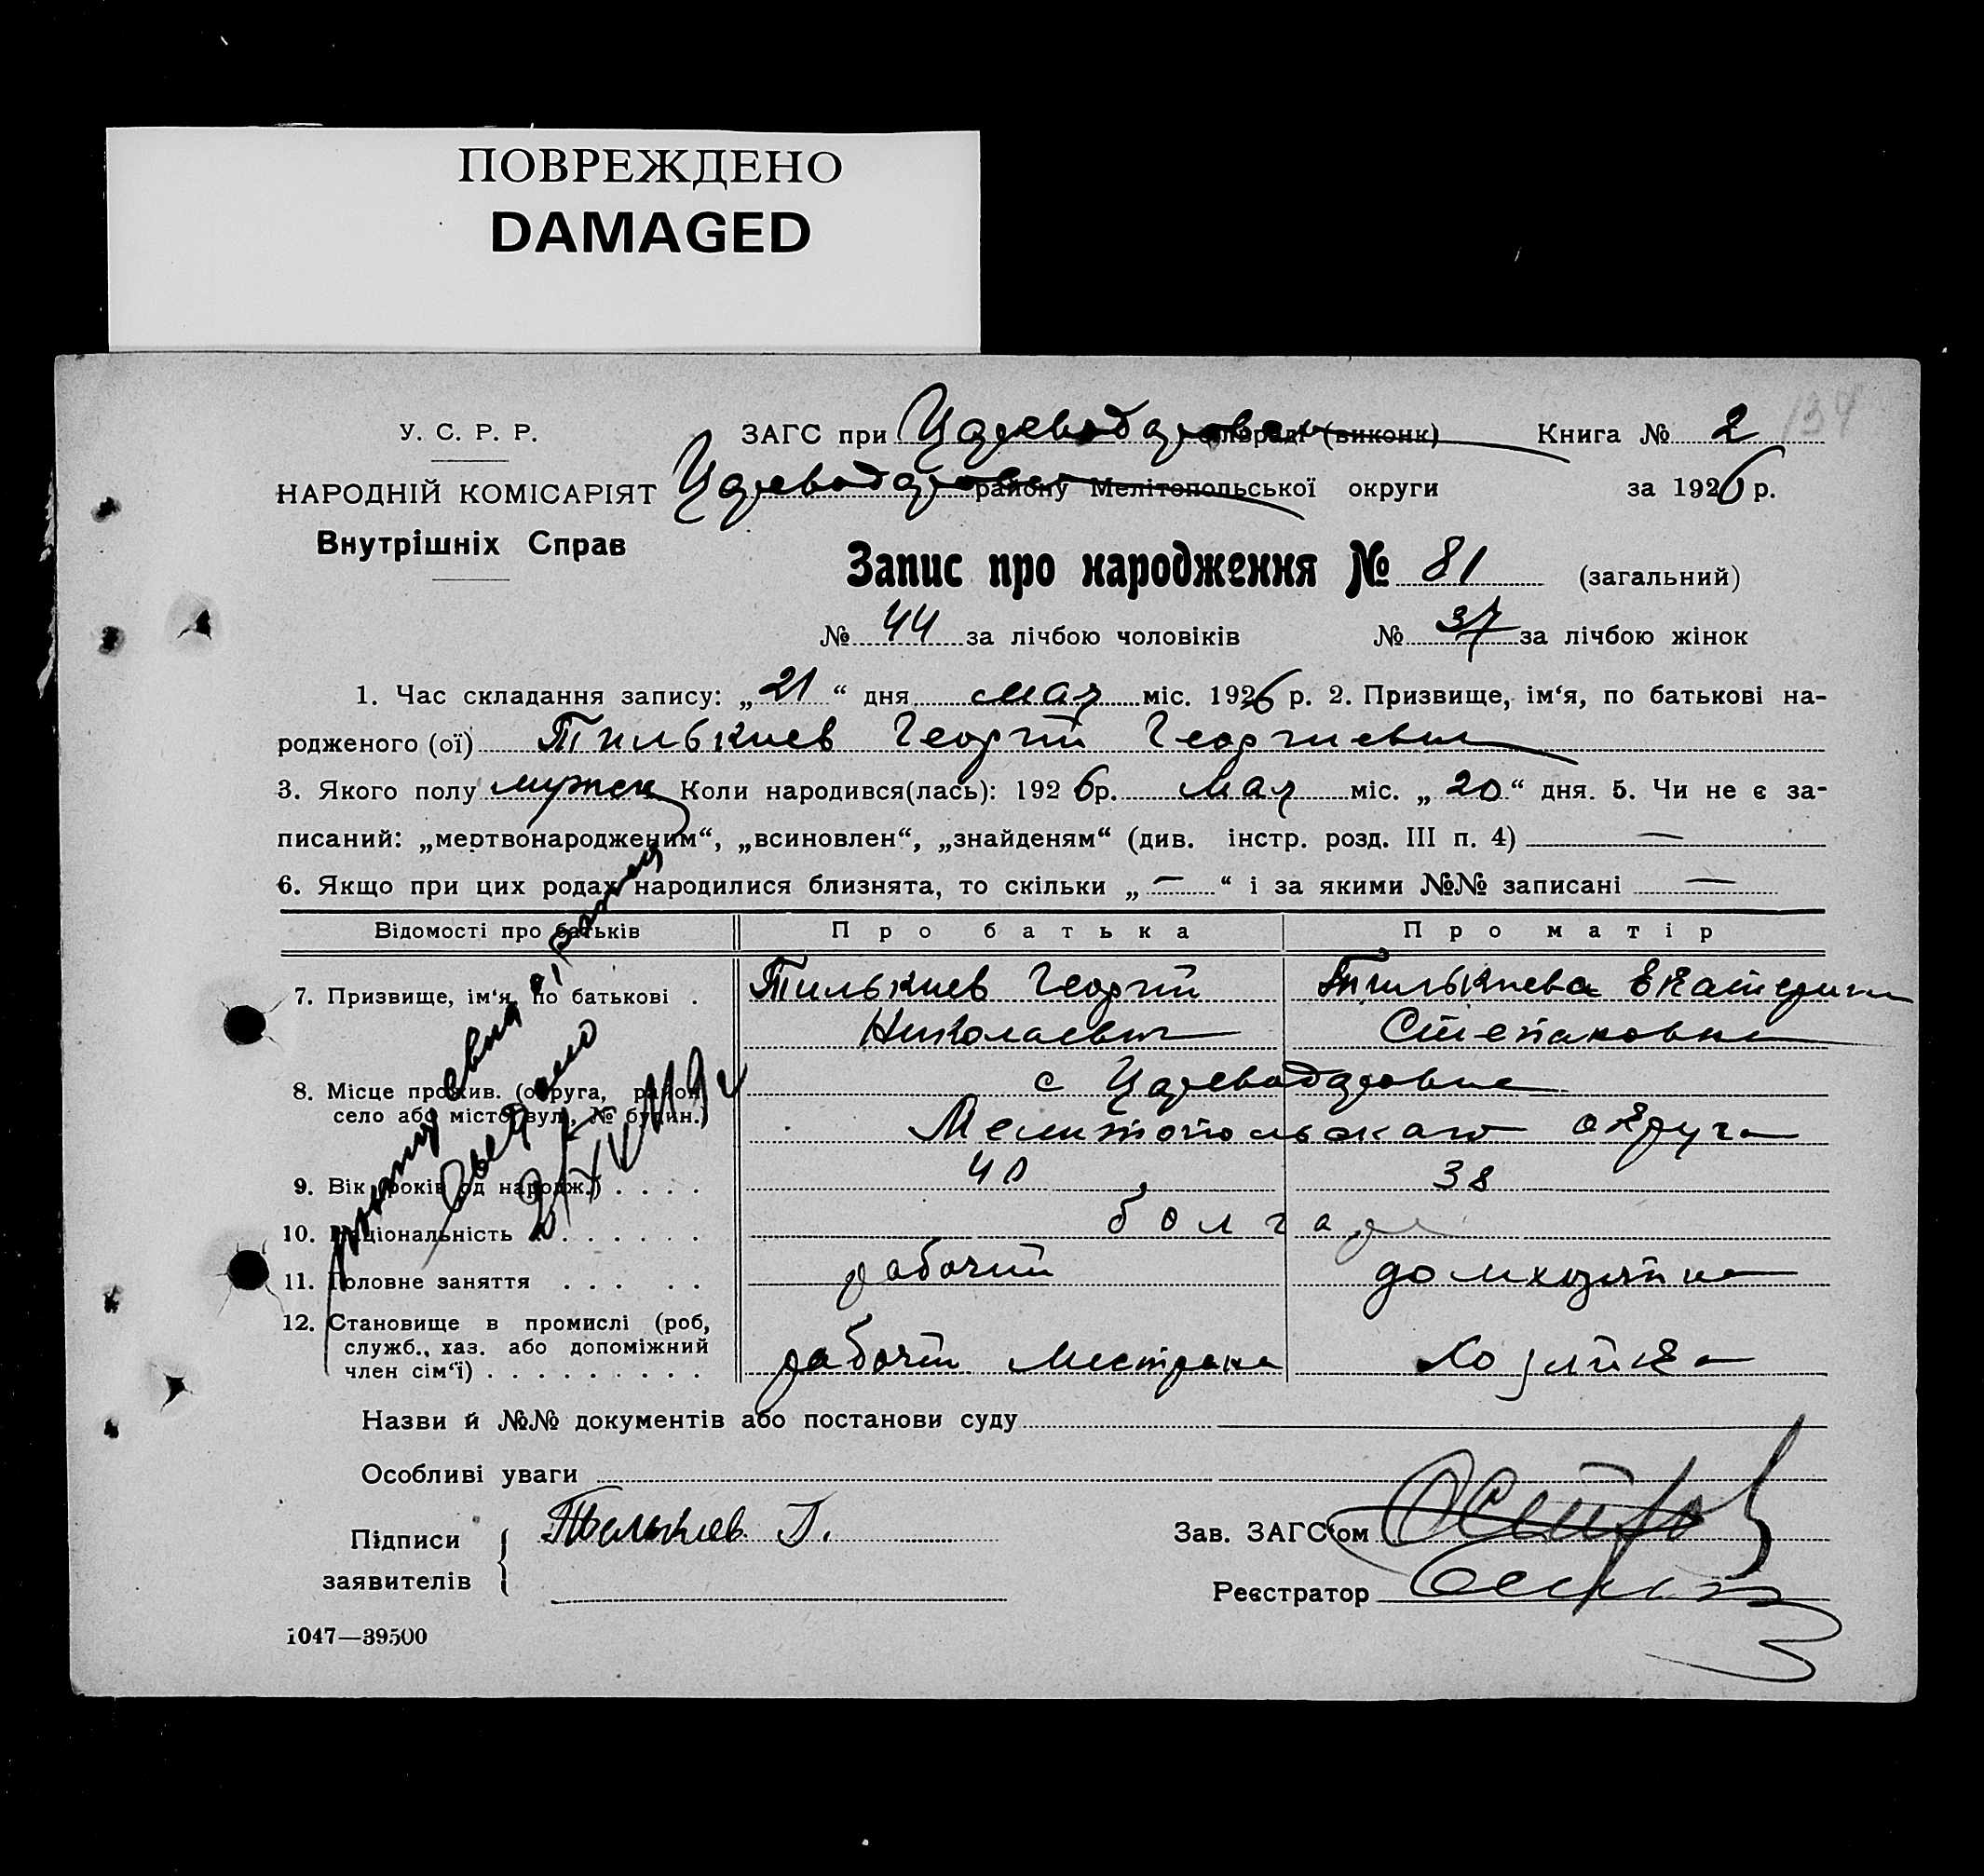 ПОВРЕЖДЕНО
DAMAGED
У. С. Р. Р.
ЗАГС при Цареводаровск сільраді (виконк)
Книга № 2 134
НАРОДНІЙ КОМІСАРІЯТ
Цареводаровск району Мелітопольської округи
за 1926 р.
Внутрішніх Справ
Запис про народження № 81 (загальний)
№ 44 за лічбою чоловіків № 37 за лічбою жінок
1. Час складання запису: „21“ дня мая міс. 1926 р. 2. Призвище, ім‘я, по батькові на-
родженого (ої) Тилькиев Георгий Георгиевич
3. Якого полу мужск Коли народився(лась): 1926р. мая міс. „20“ дня. 5. Чи не є за-
писаний: „мертвонародженим“, „всиновлен“, „знайденям“ (див. інстр. розд. III п. 4) —
6. Якщо при цих родах народилися близнята, то скільки „—“ і за якими №№ записані —
Відомості про батьків
Про батька
Про матір
7. Призвище, ім‘я, по батькові .
Тилькиев Георгий
Николаевич
Тилькиева Екатерина
Степановна
8. Місце прожив. (округа, район
село або місто, вул., № будин.)
с Цареводаровка
Мелитопольскаго округа
9. Вік (років од народж.) . . . .
40
38
10. Національність . . . . . . .
болгаре
11. Головне заняття . . . . .
рабочий
домхозяйка
12. Становище в промислі (роб,
служб., хаз. або допоміжний
член сім‘ї) . . . . . . . . .
рабочий
Хозяйка
выдано
Назви й №№ документів або постанови суду
Особливі уваги
Підписи
заявителів
Тилькиев Г.
Зав. ЗАГС‘ом
Реєстратор
1047—39500